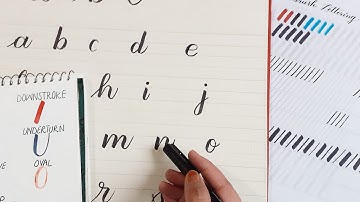 a b c d e
h i j
m n o
r
DOWNSTROKE
UNDERTURN
OVAL
Brush Lettering